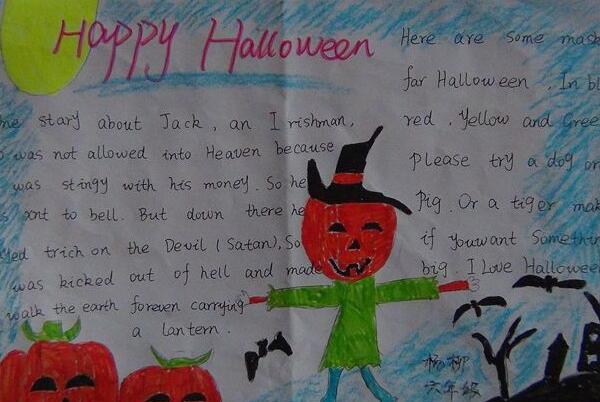 Happy Halloween
stary about Jack, an Irishman,
was not allowed into Heaven because
was stingy with his money. So he
sont to bell. But down there he
trich on the Devil (Satan), So
was kicked out of hell and made
walk the earth foreven carrying
a lantern.
Here are some
far Halloween. In
red. Yellow and
Please try a dog or
Pig. Or a tiger
if youwant
big. I Love
杨柳
六年级